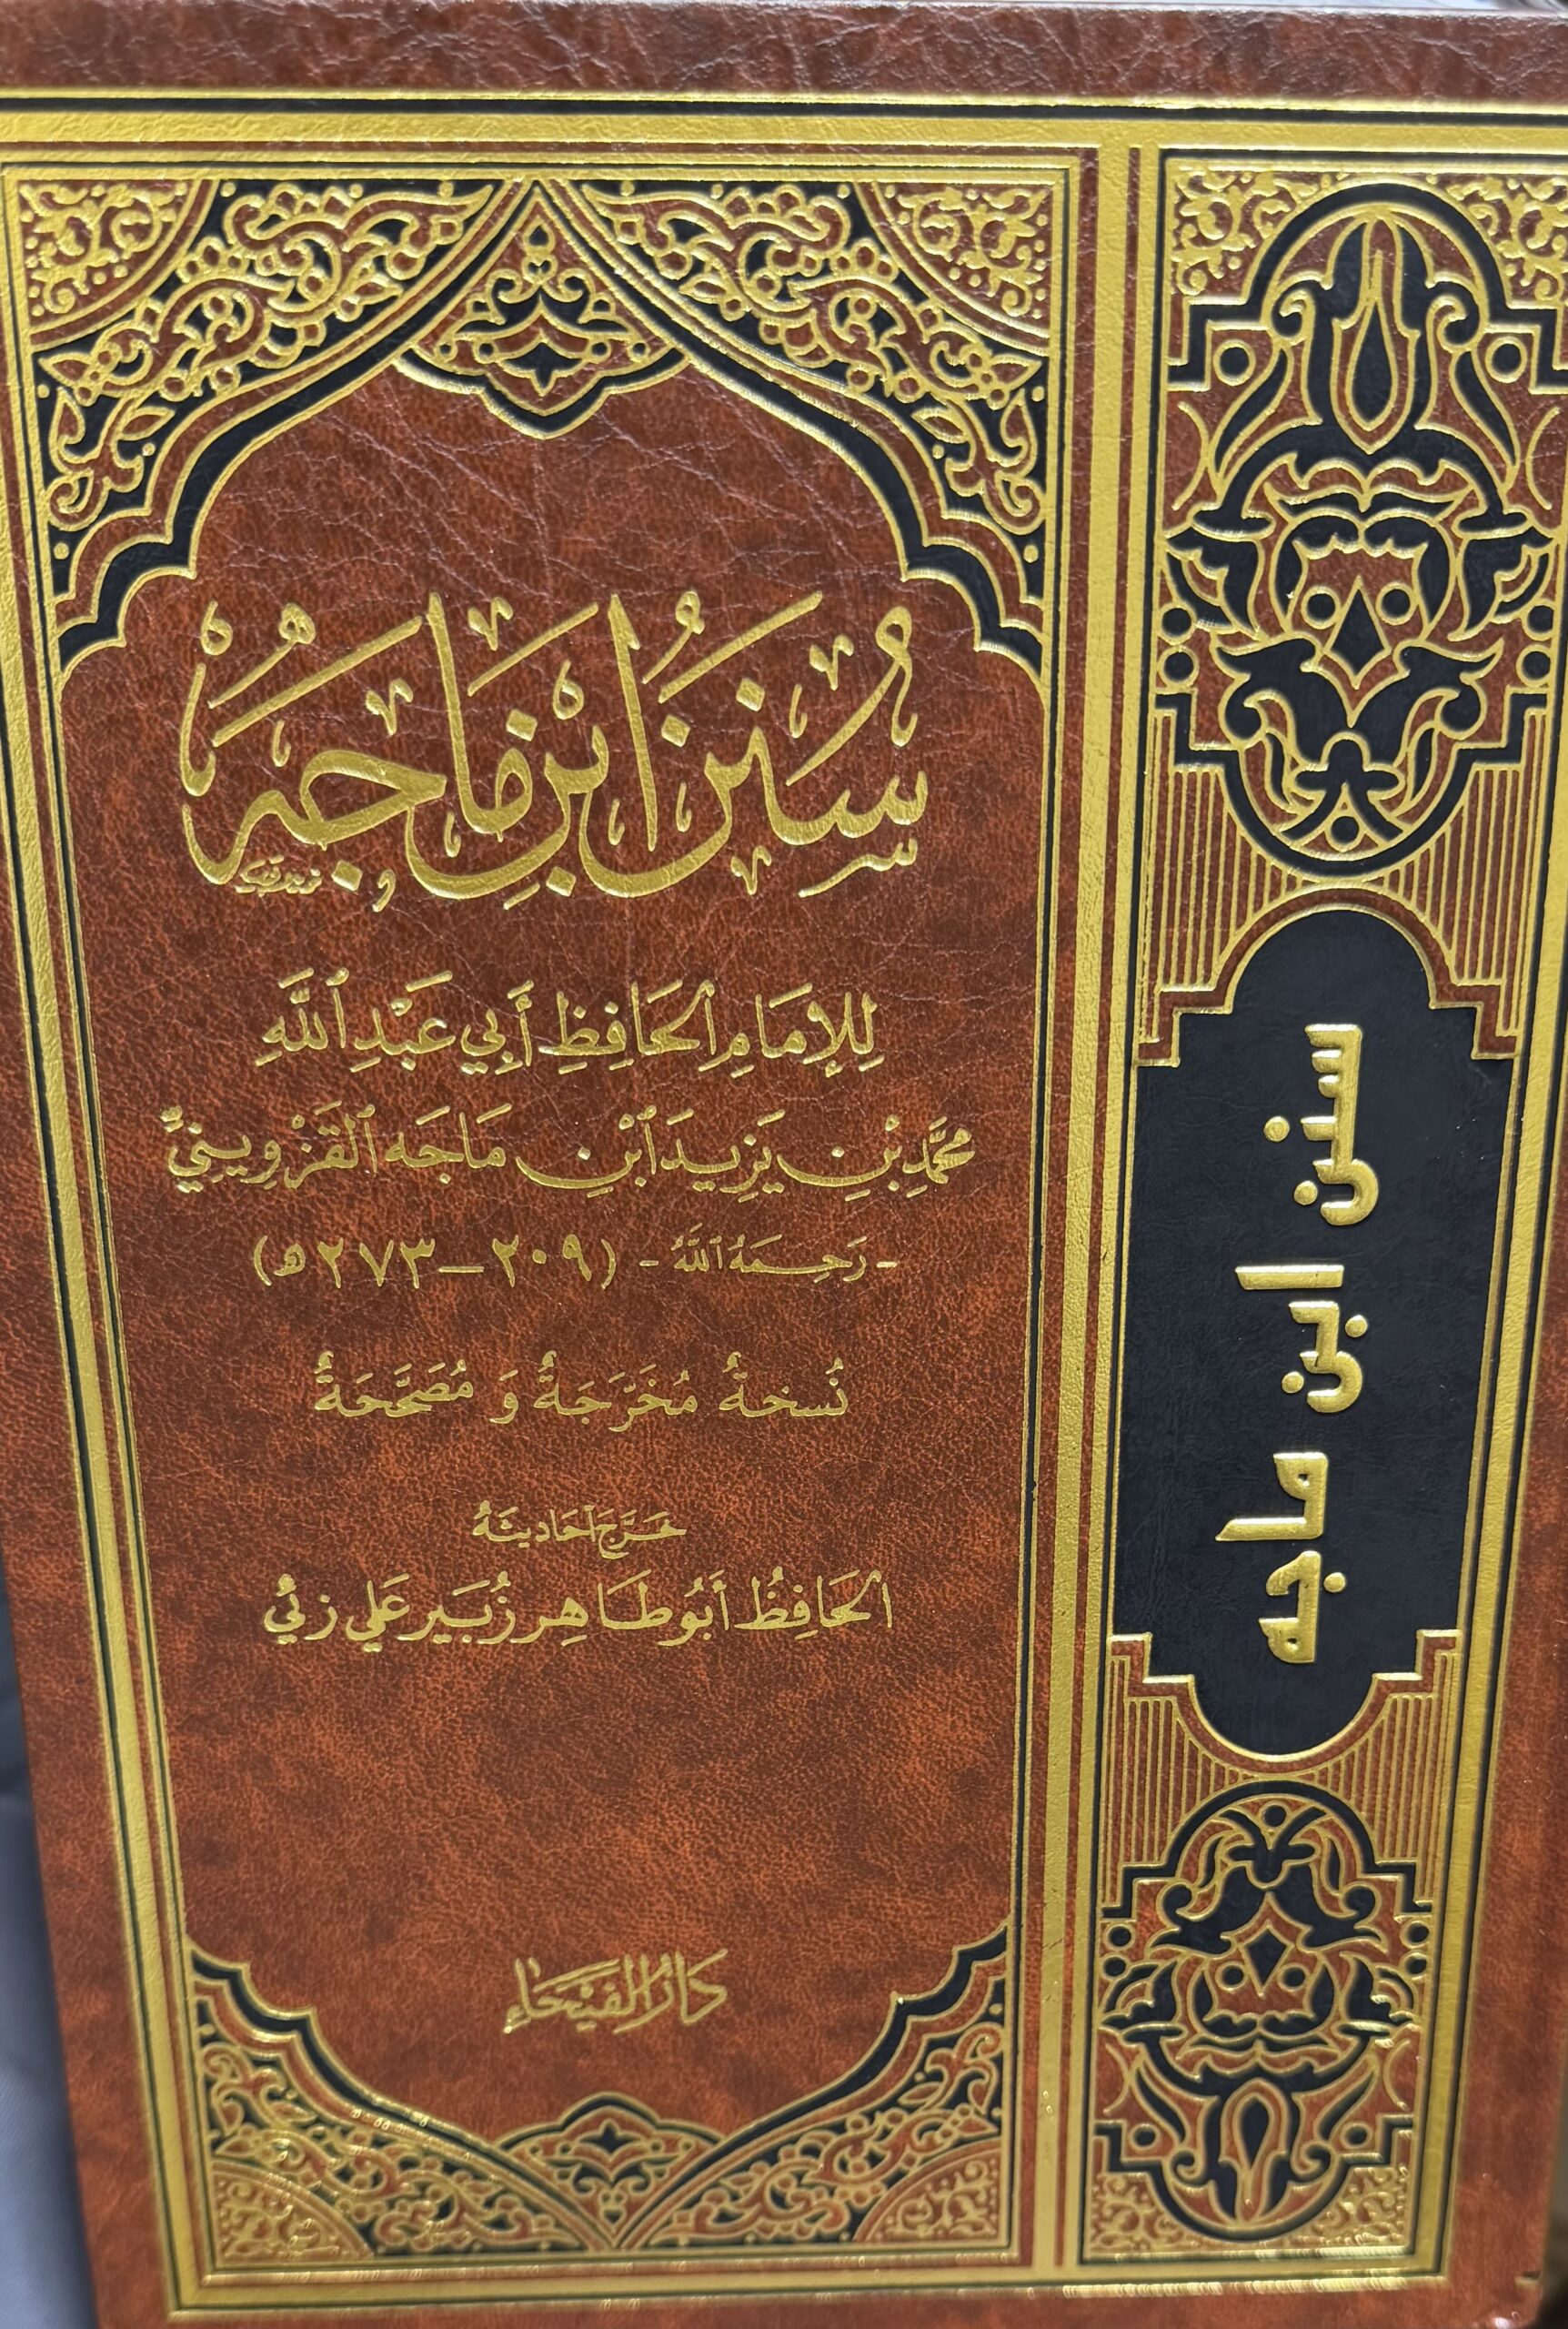 سُنَنُ ابْنِ مَاجَهْ
لِلإِمَامِ الحَافِظِ أَبِي عَبْدِ ٱللَّهِ
مُحَمَّدِ بْنِ يَزِيدَ ٱبْنِ مَاجَه القَزْوِينِيِّ
- رَحِمَهُ ٱللَّهُ - (٢٠٩ - ٢٧٣ هـ)
نُسخةٌ مُخَرَّجَةٌ وَ مُصَحَّحَةٌ
خَرَّجَ أَحَادِيثَهُ
الحَافِظُ أَبُو طَاهِر زُبَير عَلي زئي
دَارُ الفَيْحَاءِ
سنن ابن ماجه